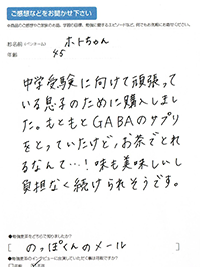 ご感想などをお聞かせ下さい
お名前(ペンネーム) ホトちゃん
年齢 45
中学受験に向けて頑張って
いる息子のために購入しまし
た。もともとGABAのサプリ
をとっていたけど、お茶でとれ
るなんて…!味も美味しいし
負担なく続けられそうです。
●勉強変茶をどちらで知りましたか?
[のっぽくんのメール]